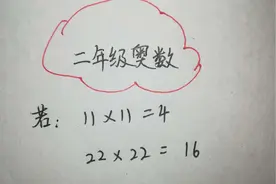 二年级奥数
若: 11×11=4
22×22=16